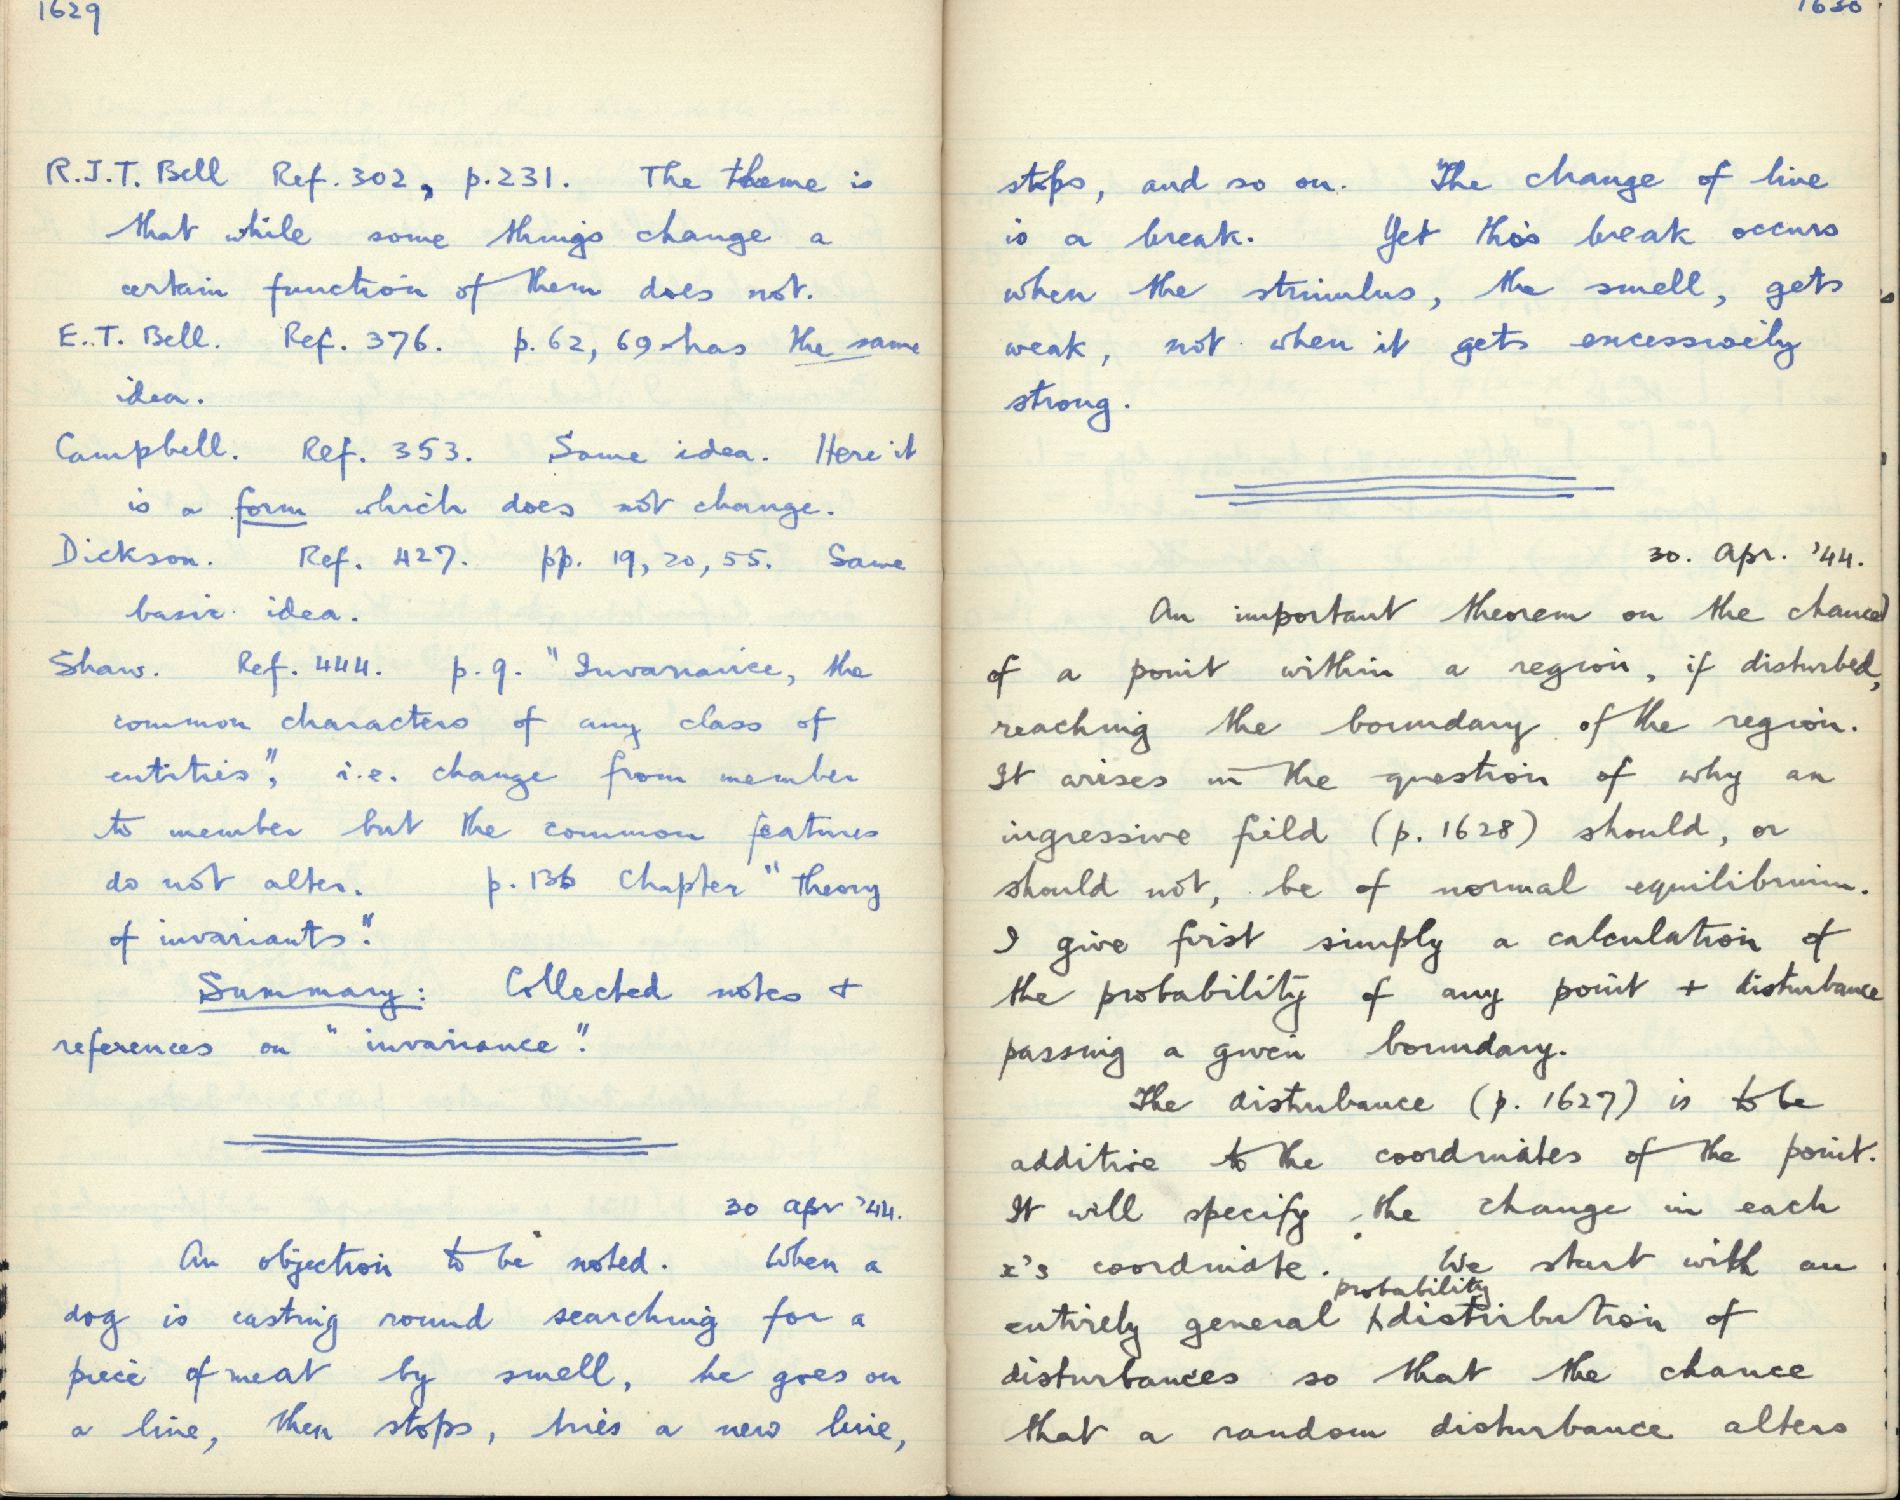 1629
R.J.T. Bell Ref. 302, p.231. The theme is
that while some things change a
certain function of them does not.
E.T. Bell. Ref. 376. p.62, 69 has the same
idea.
Campbell. Ref. 353. Same idea. Here it
is a form which does not change.
Dickson. Ref. 427. pp. 19, 20, 55. Same
basic idea.
Shaw. Ref. 444. p.9. "Invariance, the
common characters of any class of
entities", i.e. change from member
to member but the common features
do not alter. p.136 Chapter "Theory
of invariants".
Summary: Collected notes +
references on "invariance".
30 Apr '44.
An objection to be noted. When a
dog is casting round searching for a
piece of meat by smell, he goes on
a line, then stops, tries a new line,
1630
stops, and so on. The change of line
is a break. Yet this break occurs
when the stimulus, the smell, gets
weak, not when it gets excessively
strong.
30. Apr. '44.
An important theorem on the chance
of a point within a region, if disturbed,
reaching the boundary of the region.
It arises in the question of why an
ingressive field (p. 1628) should, or
should not, be of normal equilibrium.
I give first simply a calculation of
the probability of any point + disturbance
passing a given boundary.
The disturbance (p. 1627) is to be
additive to the coordinates of the point.
It will specify the change in each
x's coordinate. We start with an
probability
entirely general distribution of
disturbances so that the chance
that a random disturbance alters